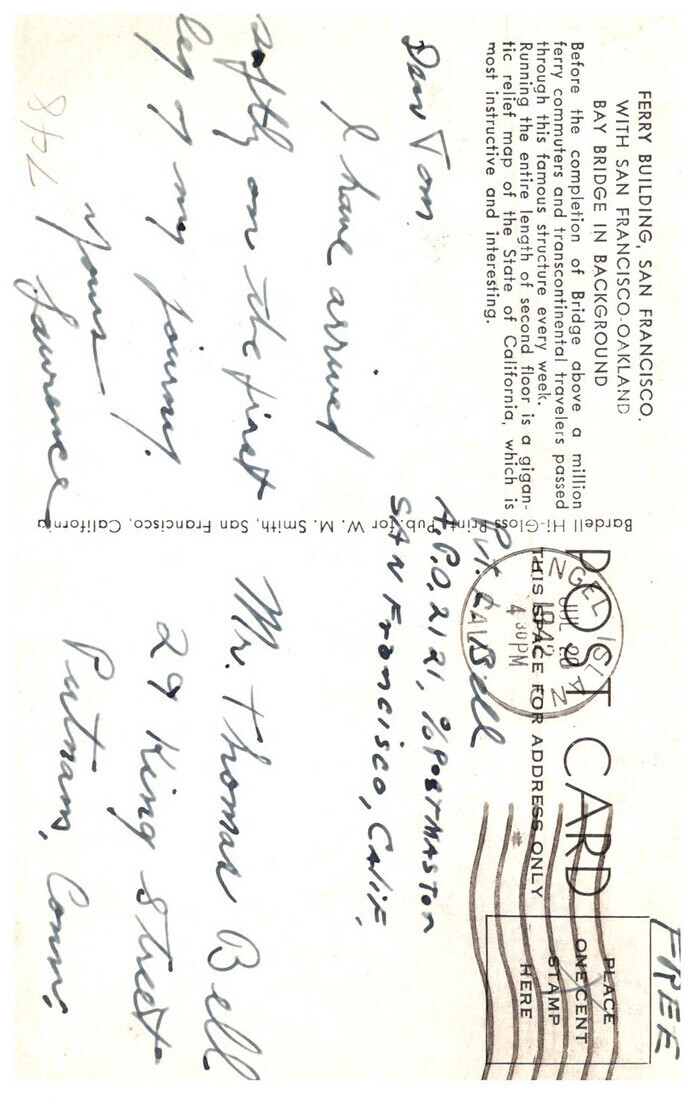 FERRY BUILDING, SAN FRANCISCO,
WITH SAN FRANCISCO-OAKLAND
BAY BRIDGE IN BACKGROUND
Before the completion of Bridge above a million
ferry commuters and transcontinental travelers passed
through this famous structure every week.
Running the entire length of second floor is a gigan-
tic relief map of the State of California, which is
most instructive and interesting.
Dear Tom.
I have arrived
saftly on the first
leg of my journey.
Yours
Lawrence
748
Bardell Hi-Gloss Print, Pub. for W. M. Smith, San Francisco, California
FREE
POST CARD
THIS SPACE FOR ADDRESS ONLY
PLACE
ONE CENT
STAMP
HERE
ANGEL ISLAND
JUL 20
4 30 PM
1942
CALIF
Pvt. L Bell
A.P.O. 2121, % POSTMASTOR
SAN Francisco, CALIF,
Mr. Thomas Bell
29 King Street
Putnam, Conn.